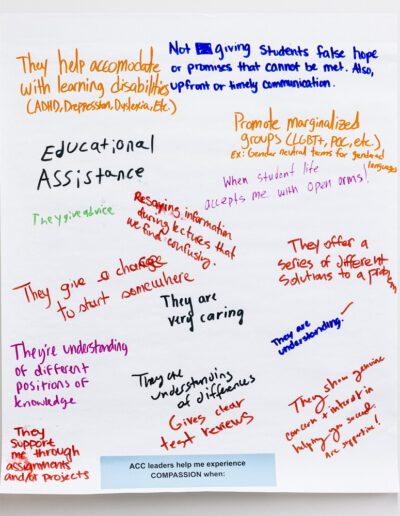 They help accomodate
with learning disabilities
(ADHD, Drepression, Dyslexia, Etc.)
Not giving students false hope
or promises that cannot be met. Also,
upfront or timely communication.
Promote marginalized
groups (LGBT+, POC, etc.)
Ex: Gender neutral terms for gendered
languages
Educational
Assistance
When student life
accepts me with open arms!
They give advice
Resaying information
during lectures that
we find confusing.
They offer a
series of different
solutions to a problem
They give a chance
to start somewhere
They are
very caring
They are
understanding.
They're understanding
of different
positions of
knowledge
They are
understanding
of differences
Gives clear
test reviews
They show genuine
concern + interest in
helping you succeed
are supportive!
They
support
me through
assignments
and/or projects
ACC leaders help me experience
COMPASSION when: